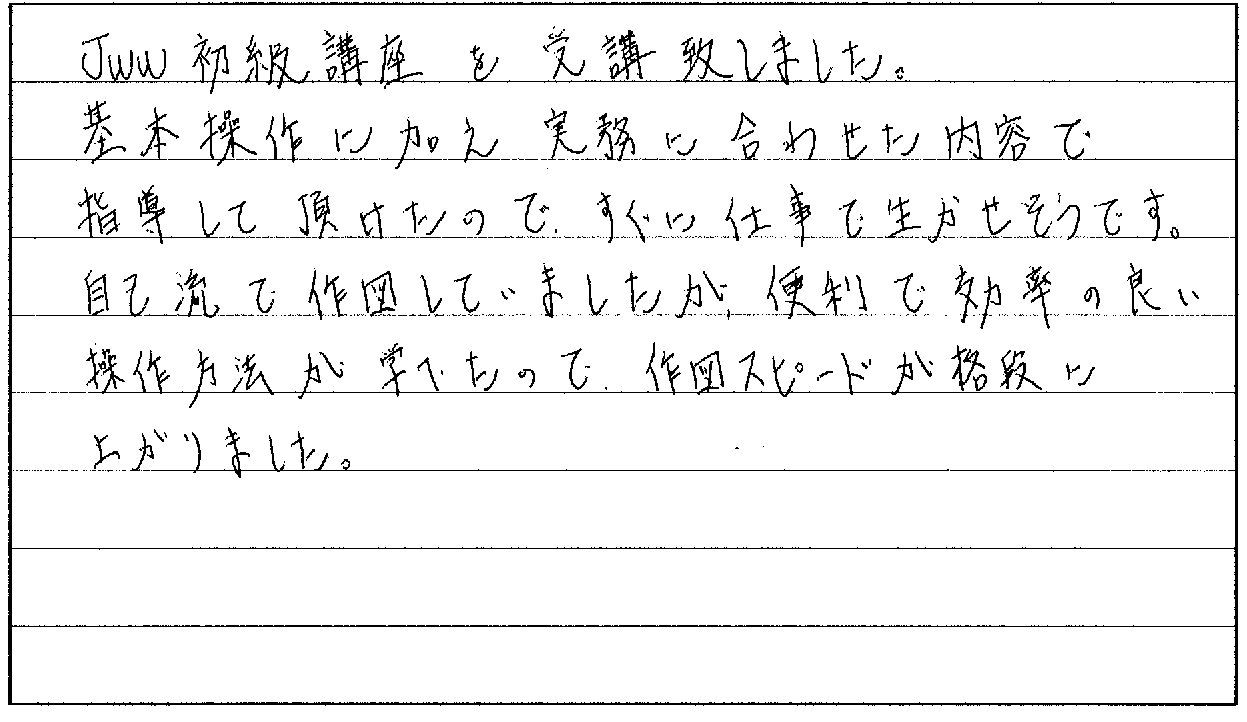 Jww 初級講座 を 受講致しました。
基本操作に加え 実務に合わせた内容で
指導して頂けたので、すぐに仕事で生かせそうです。
自己流で作図していましたが、便利で効率の良い
操作方法が学べたので、作図スピードが格段に
上がりました。